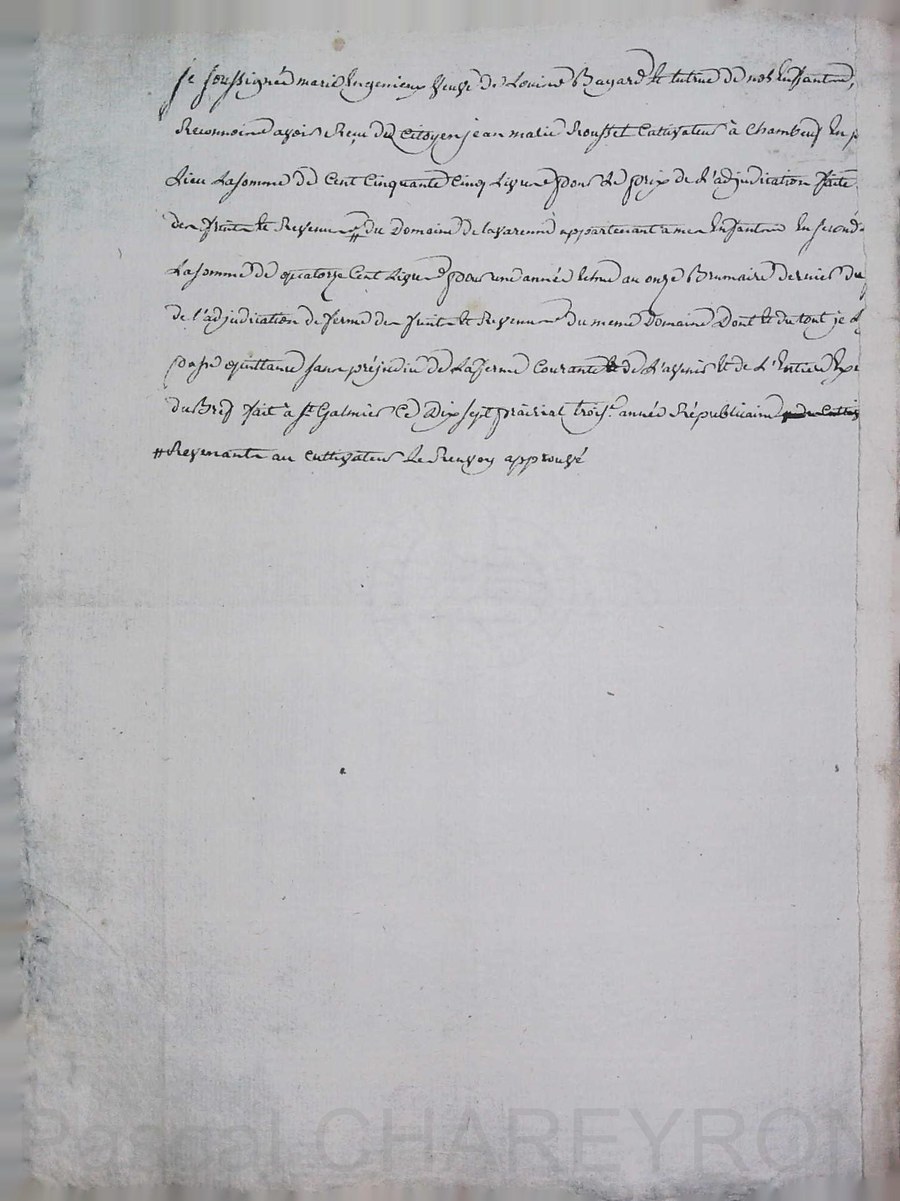 je soussignée marie Ingenieux veuve de Louis Bayard et tutrice de nos Enfants,
Reconnois avoir Reçu du Citoyen jean marie Rousset Cultivateur à Chambeuf En p
Lieu La somme de Cent Cinquante Cinq Livres pour Le prix de L'adjudication faite
des fruits et Revenus # du Domaine de la varenne appartenant a mes Enfants En second
La somme de quatorze Cent Livres pour une année Echue au onze Brumaire dernier du
de l'adjudication de ferme des fruits et Revenus du meme Domaine Dont et du tout je
passe quittance sans préjudice de La ferme Courante et de L'avenir et de L'Entiere Ex
du Bref fait à St Galmier Ce Dix sept prairial trois.e année Républicaine
# Revenants au Cultivateur Le Renvoy approuvé
Pascal CHAREYRON